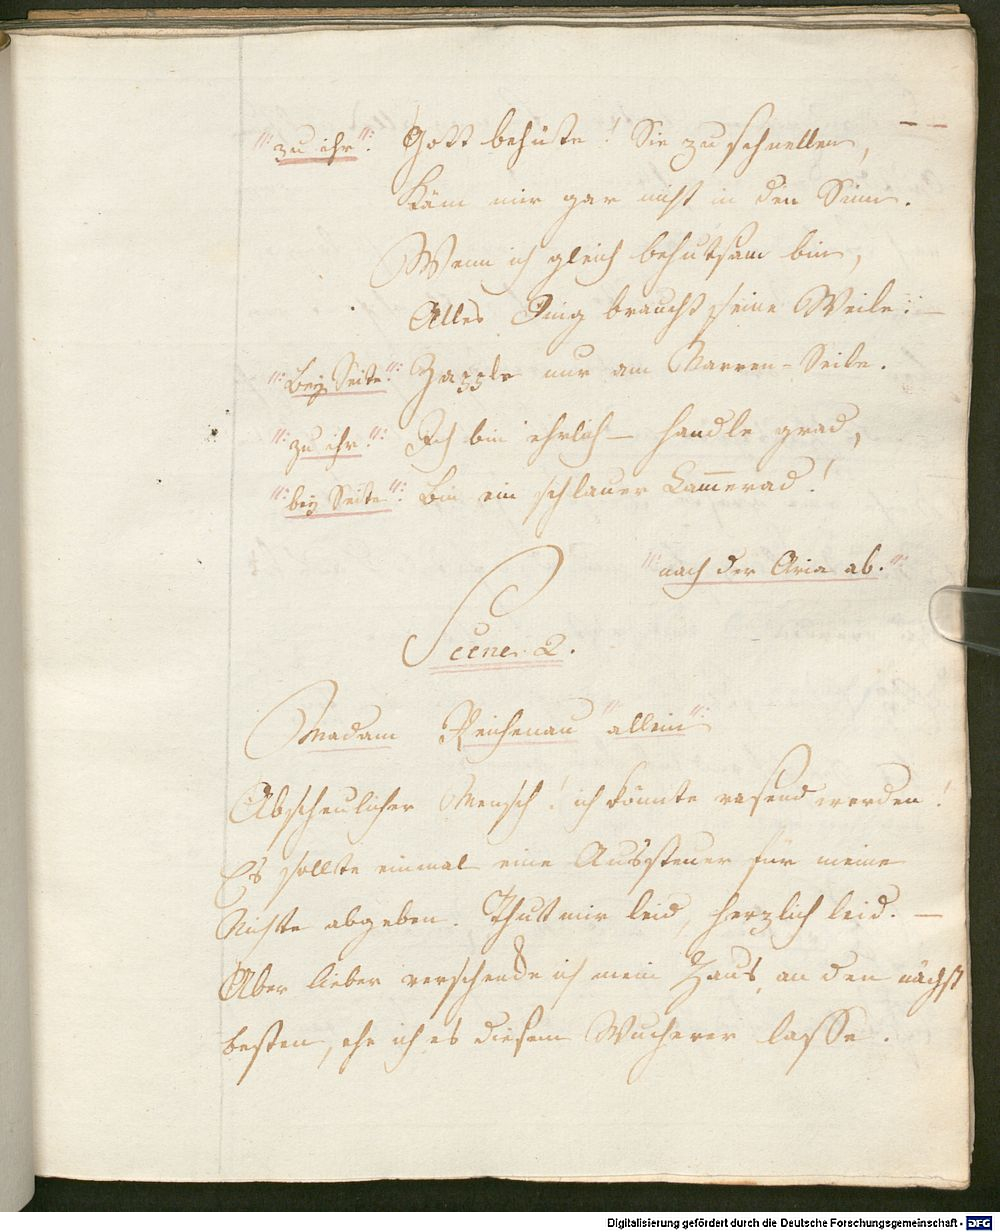 "zu ihr": Gott behüte! Sie zu schnellen,
Käm mir gar nicht in den Sinn.
Wenn ich gleich behutsam bin,
Alles Ding braucht seine Weile: —
":Bey Seite": Zapple nur am Narren-Seile.
":zu ihr": Ich bin ehrlich — handle grad,
":bey Seite": Bin ein schlauer Kam̅erad!
":nach der Aria ab.":
Scene 2.
Madam Reichenau ":allein":
Abscheulicher Mensch! ich könnte rasend werden!
Es sollte einmal eine Aussteuer für meine
Nichte abgeben. Thut mir leid, herzlich leid. —
Aber lieber verschenke ich mein Haus an den nächst
besten, ehe ich es diesem Wucherer lasse.
Digitalisierung gefördert durch die Deutsche Forschungsgemeinschaft - DFG